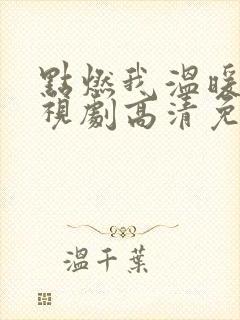 點燃我溫暖
視劇高清免
溫千葉